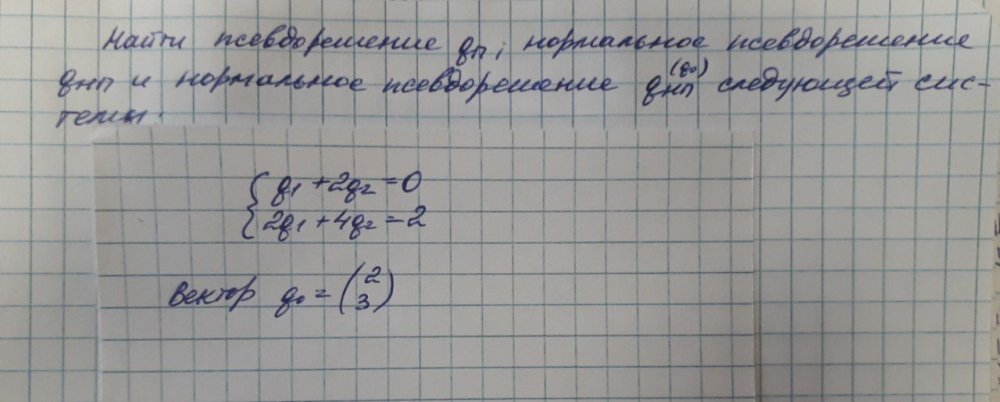 Найти псевдорешение qп, нормальное псевдорешение
qнп и нормальное псевдорешение qнп^(q₀) следующей сис-
темы.
{ q₁ + 2q₂ = 0
2q₁ + 4q₂ = 2
Вектор q₀ = (2
3)